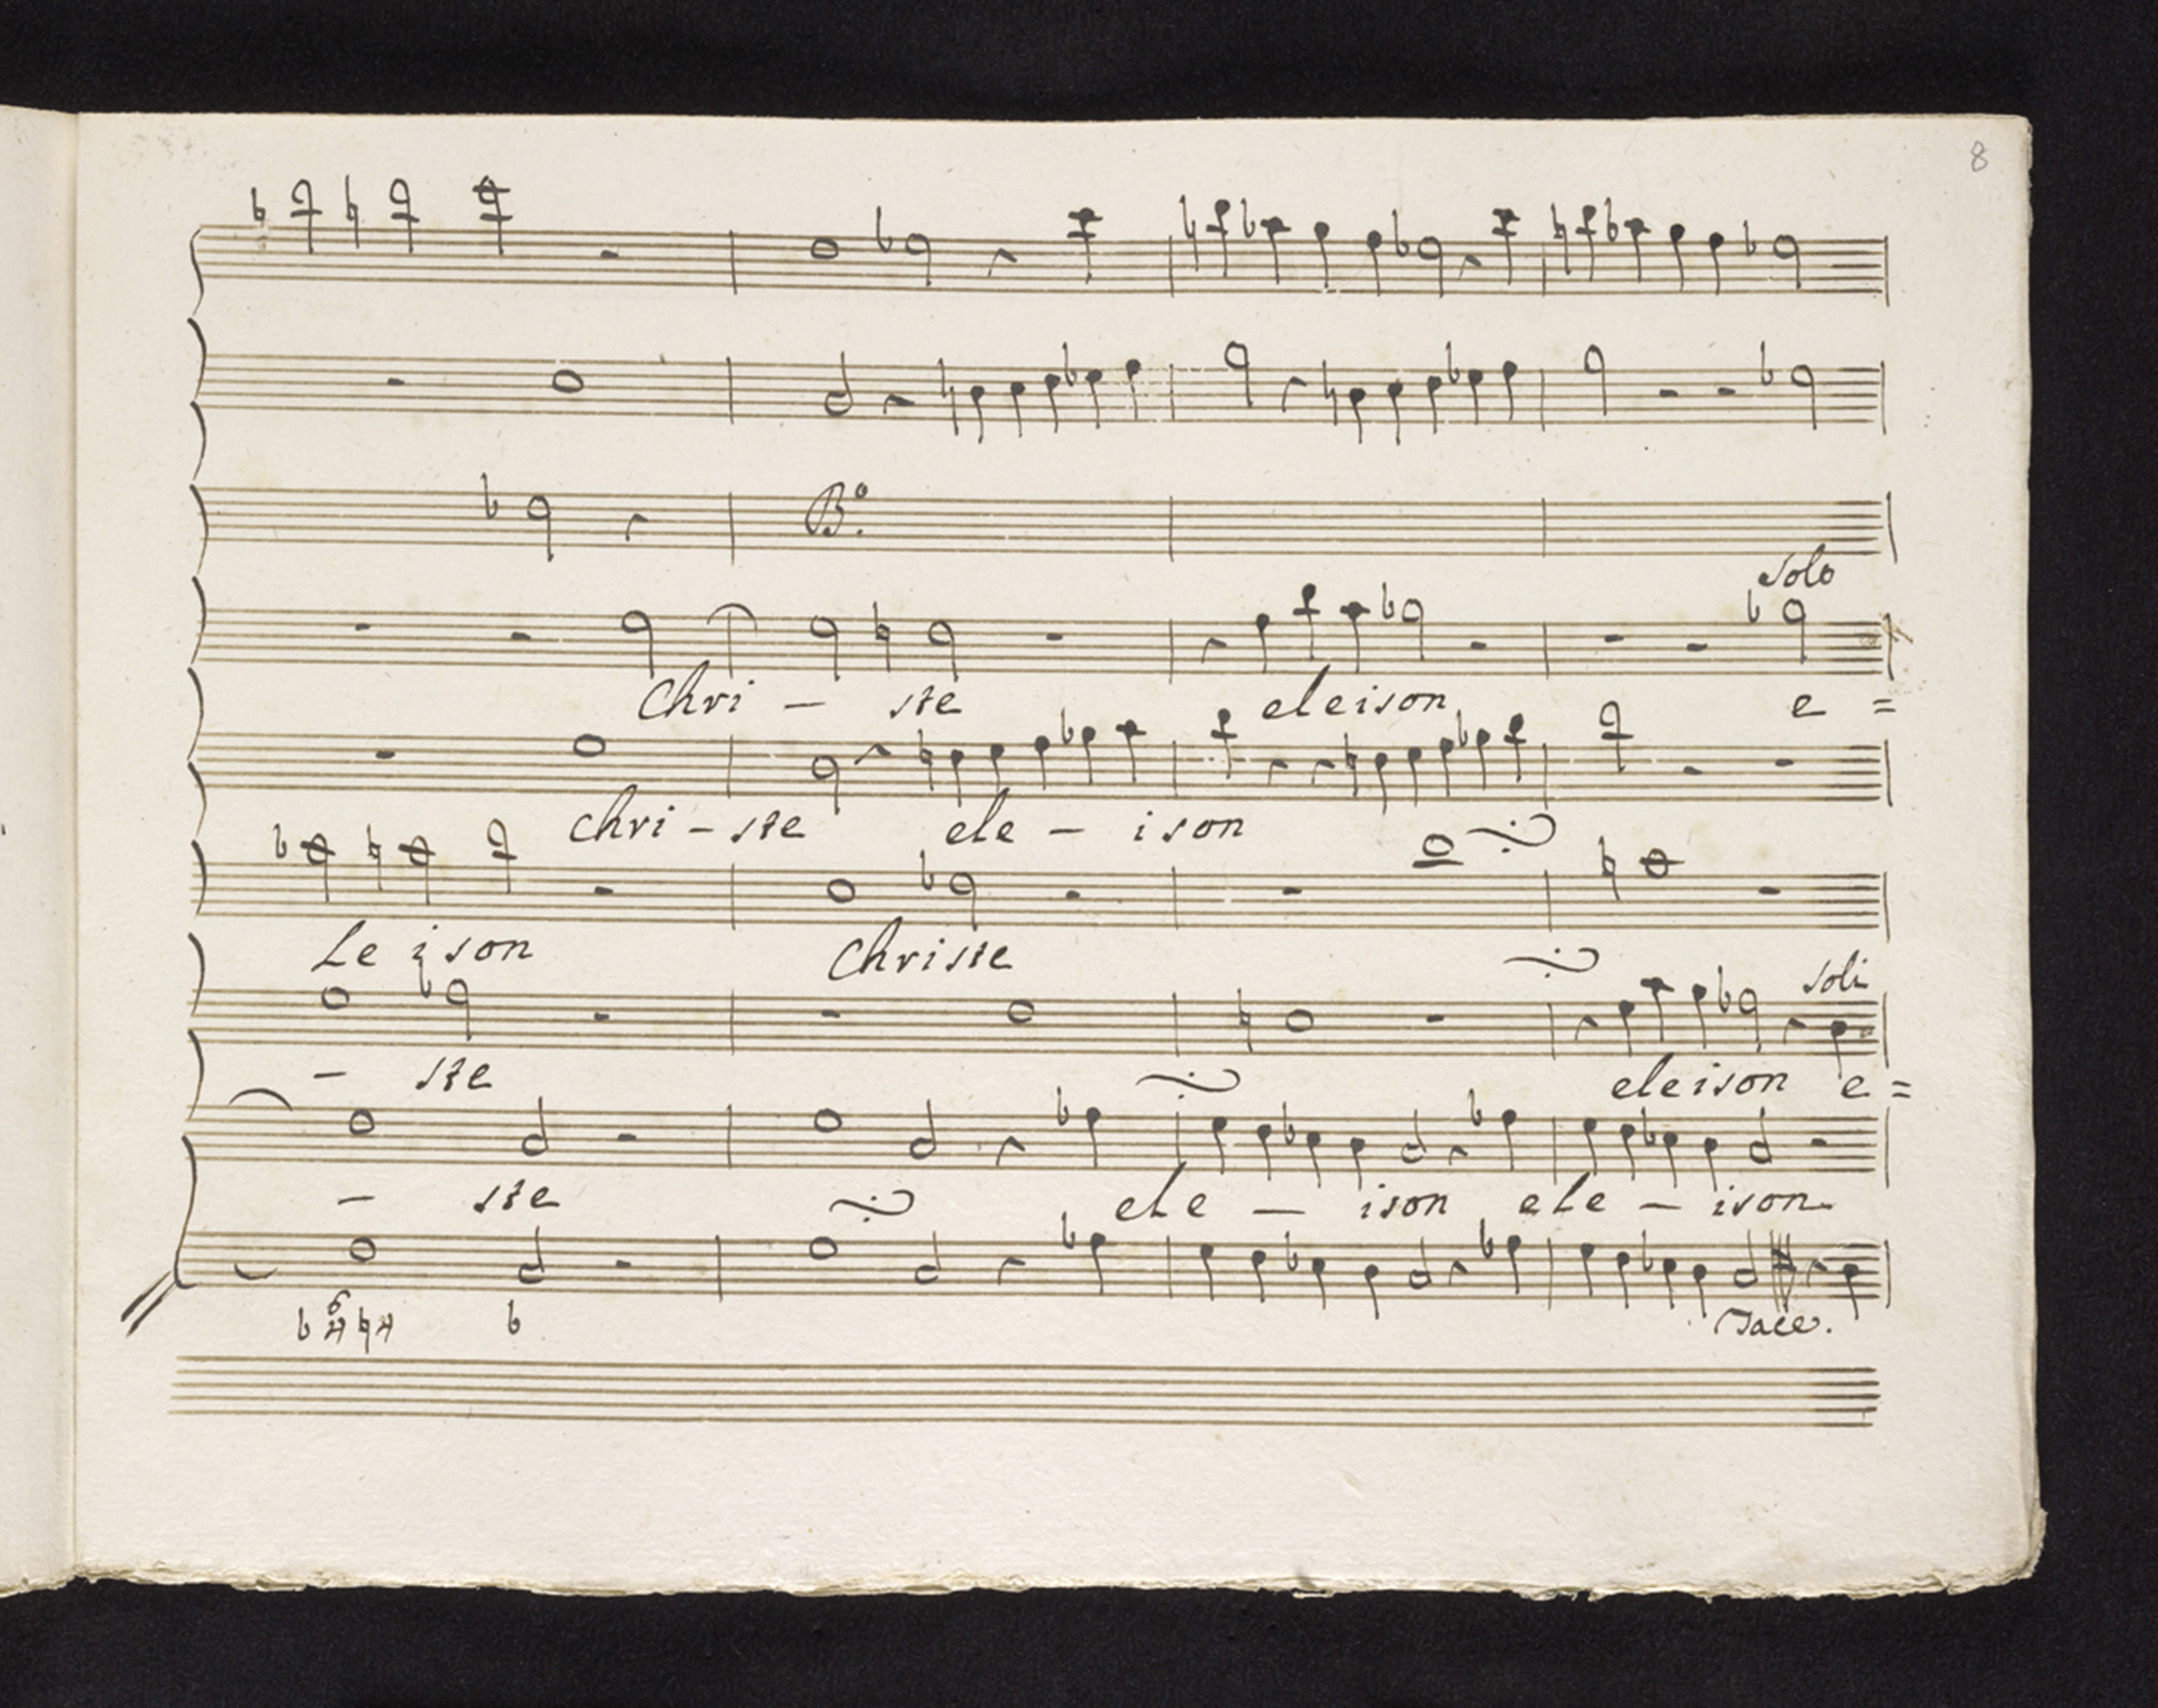 8
B.º
Solo
Chri - ste eleison e =
chri - ste ele - ison
Le ison Christe
Soli
- ste eleison e =
- ste ele - ison ele - ison
6
Tace.